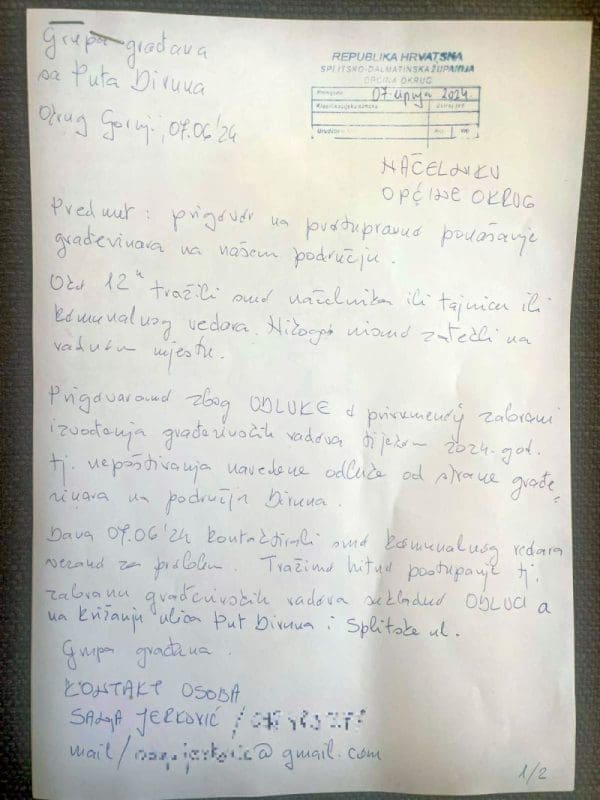 Grupa građana
sa Puta Divuna
Okrug Gornji, 07.06'24
REPUBLIKA HRVATSKA
SPLITSKO-DALMATINSKA ŽUPANIJA
OPĆINA OKRUG
Primljeno 07. lipnja 2024.
Klasifikacijska oznaka
NAČELNIKU
OPĆINE OKRUG
Predmet: prigovor na protupravno ponašanje
građevinara na našem području.
Oko 12h tražili smo načelnika ili tajnicu ili
komunalnog redara. Nikoga nismo zatekli na
radnom mjestu.
Prigovaramo zbog ODLUKE o privremenoj zabrani
izvođenja građevinskih radova tijekom 2024. god.
tj. nepoštivanja navedene odluke od strane građe
vinara na području Divuna.
Dana 07.06'24 kontaktirali smo komunalnog redara
vezano za problem. Tražimo hitno postupanje tj.
zabranu građevinskih radova sukladno ODLUCI a
na križanju ulica Put Divuna i Splitske ul.
Grupa građana.
KONTAKT OSOBA
SANJA JERKOVIĆ /
mail/ @gmail.com
1/2